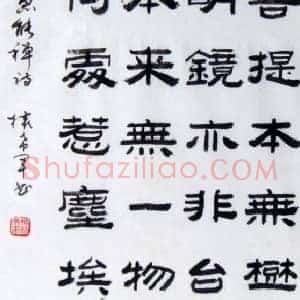 菩提本無樹
明鏡亦非台
本来無一物
何處惹塵埃
能禪詩
Shufaziliao.com